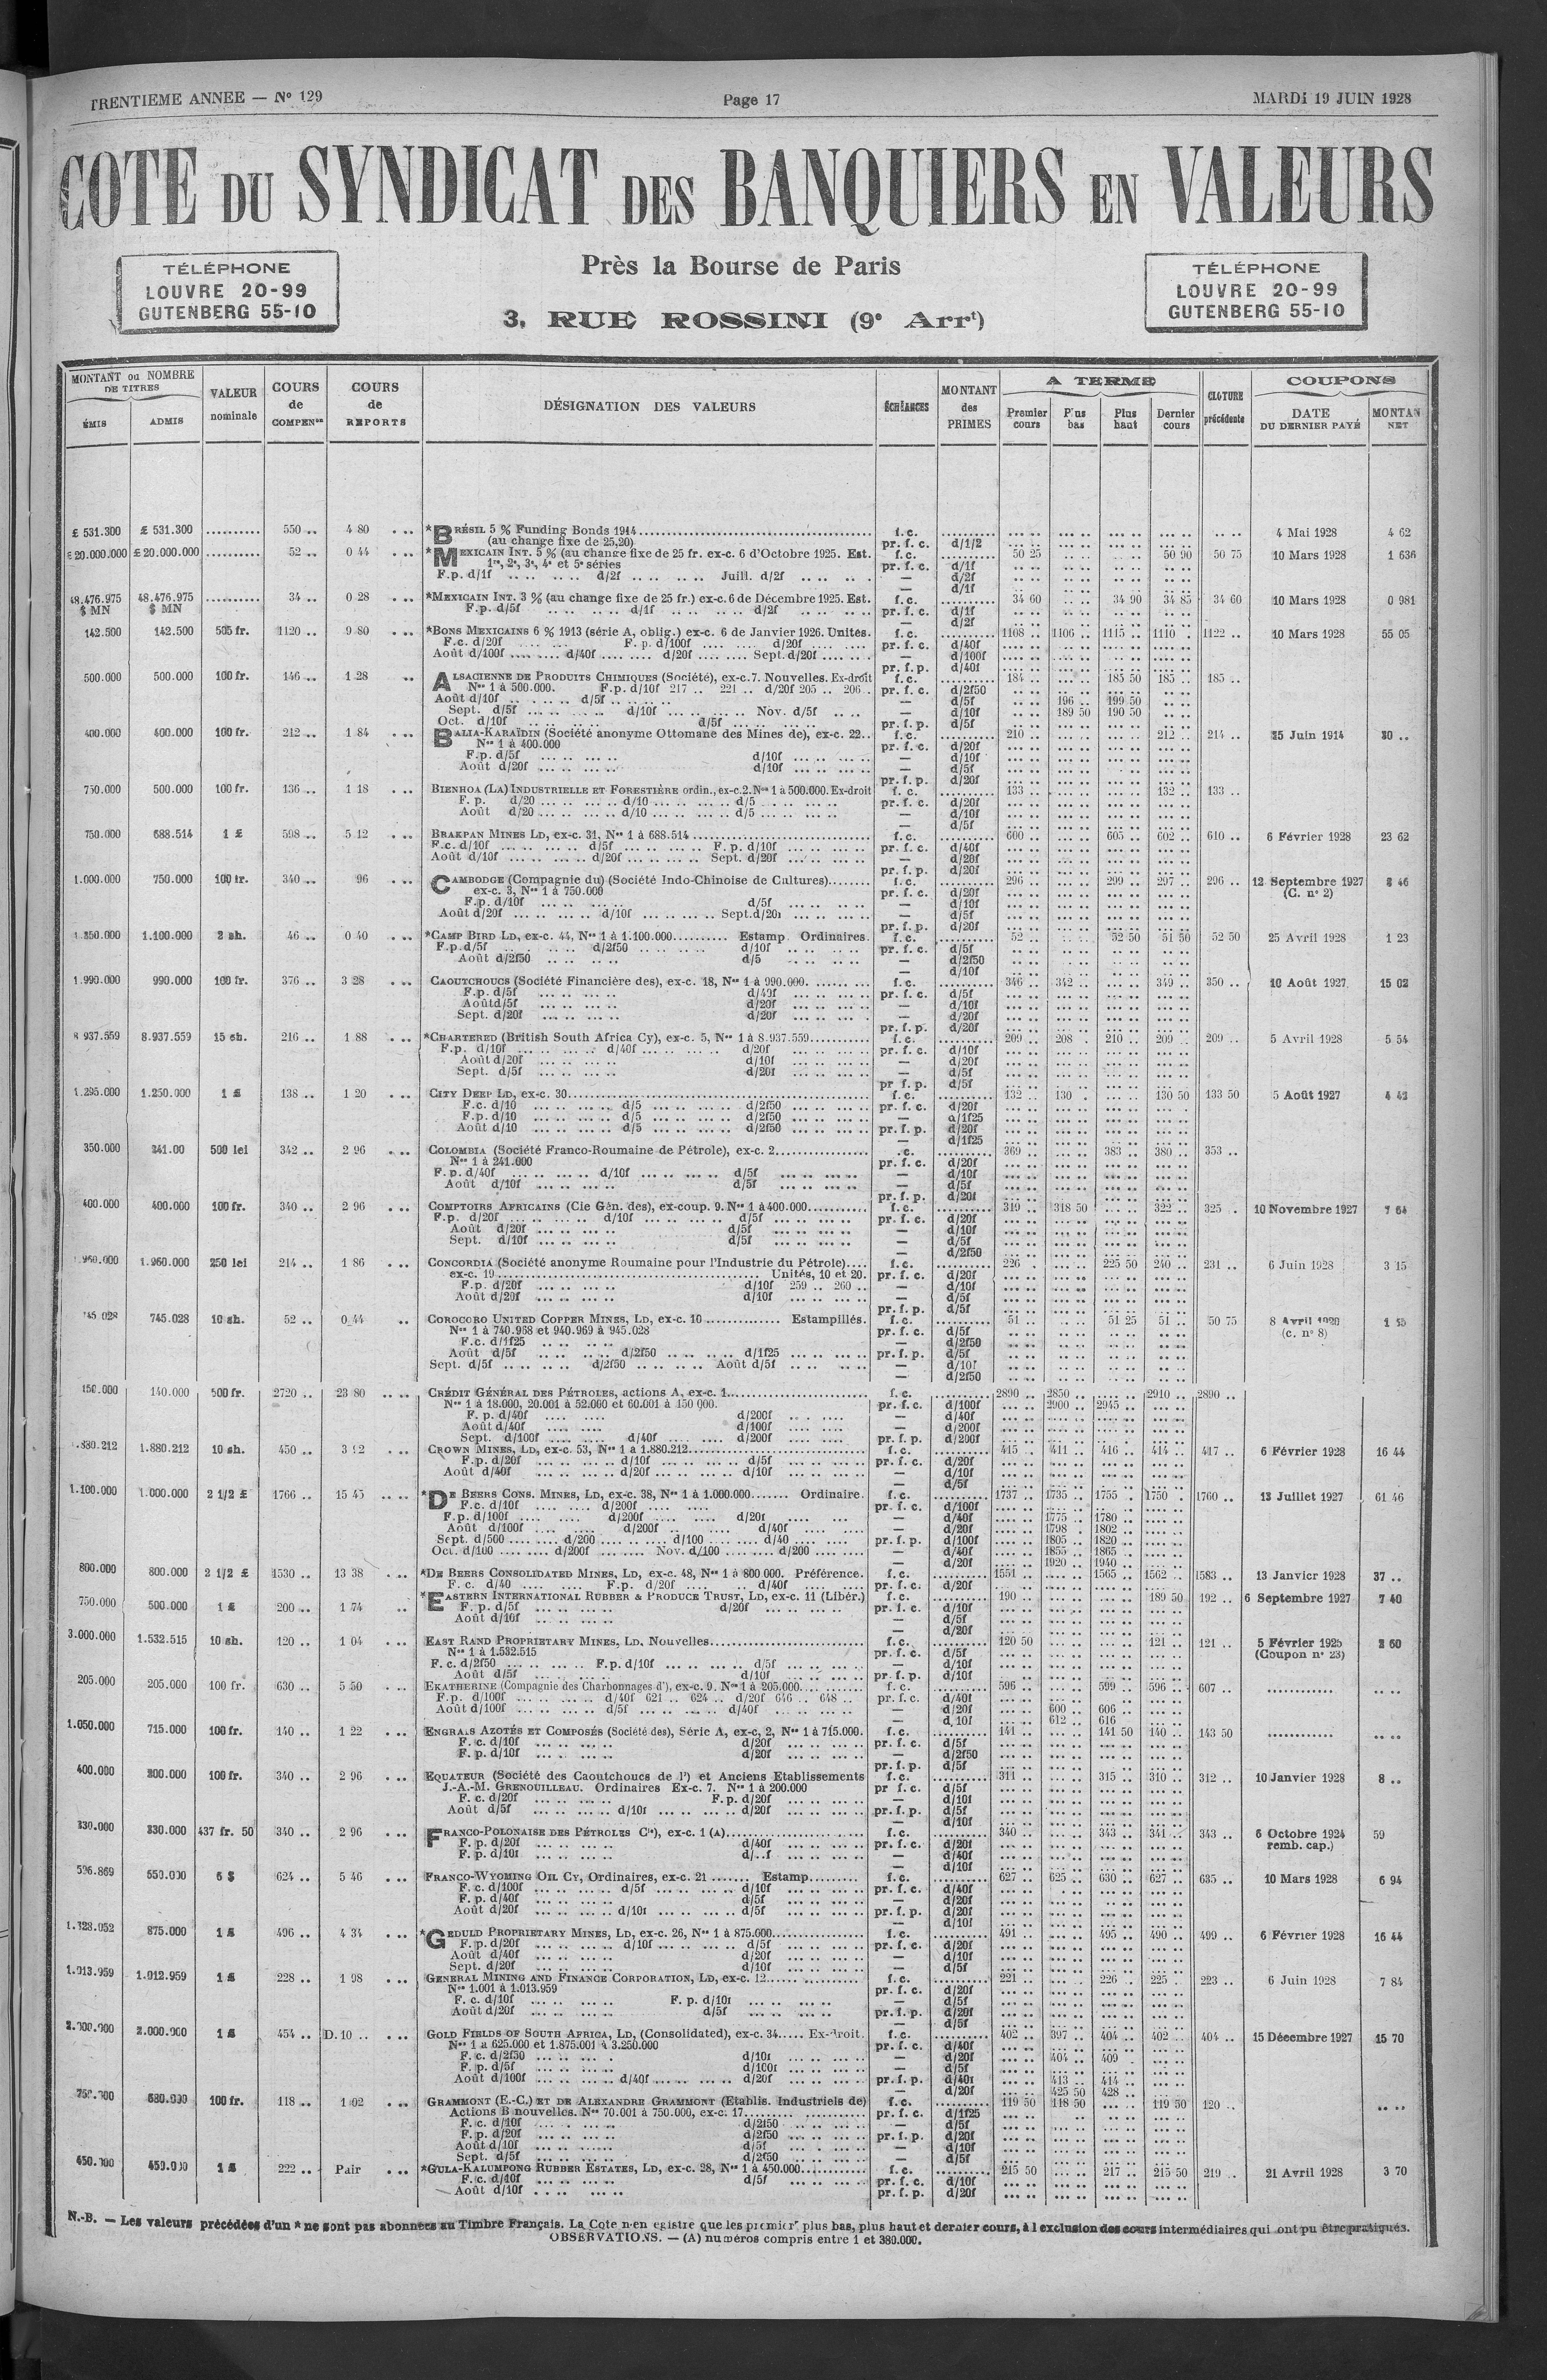 TRENTIEME ANNEE — Nº 129 Page 17 MARDI 19 JUIN 1928
COTE DU SYNDICAT DES BANQUIERS EN VALEURS
TÉLÉPHONE
LOUVRE 20-99
GUTENBERG 55-10
Près la Bourse de Paris
3, RUE ROSSINI (9e Arrt)
TÉLÉPHONE
LOUVRE 20-99
GUTENBERG 55-10
MONTANT ou NOMBRE DE TITRES ÉMIS ADMIS VALEUR nominale COURS de COMPENon COURS de REPORTS DÉSIGNATION DES VALEURS ÉCHÉANCES MONTANT des PRIMES A TERME Premier cours Plus bas Plus haut Dernier cours CLOTURE précédente COUPONS DATE DU DERNIER PAYÉ MONTAN NET
£ 531.300 £ 531.300 .......... 550 .. 4 80 *BRÉSIL 5 % Funding Bonds 1914 f.c. 4 Mai 1928 4 62
(au change fixe de 25,20) pr. f. c. d/1/2
£ 20.000.000 £ 20.000.000 .......... 52 .. 0 44 *MEXICAIN INT. 5 % (au change fixe de 25 fr. ex-c. 6 d'Octobre 1925. Est. f.c. 50 25 50 90 50 75 10 Mars 1928 1 636
1re, 2e, 3e, 4e et 5e séries pr. f. c. d/1f
F.p. d/1f .. .. d/2f .. .. Juill. d/2f — d/2f
d/1f
48.476.975 $ MN 48.476.975 $ MN .......... 34 .. 0 28 *MEXICAIN INT. 3 % (au change fixe de 25 fr.) ex-c. 6 de Décembre 1925. Est. f.c. 34 60 34 90 34 85 34 60 10 Mars 1928 0 981
F.p. d/5f d/1f d/2f pr. f. c. d/1f
— d/2f
142.500 142.500 505 fr. 1120 .. 9 80 *BONS MEXICAINS 6 % 1913 (série A, oblig.) ex-c. 6 de Janvier 1926. Unités. f.c. 1108 .. 1106 .. 1115 .. 1110 .. 1122 .. 10 Mars 1928 55 05
F.c. d/20f F.p. d/100f d/20f pr. f. c. d/40f
Août d/100f d/40f d/20f Sept. d/20f — d/100f
pr. f. p. d/40f
500.000 500.000 100 fr. 146 .. 1 28 ALSACIENNE DE PRODUITS CHIMIQUES (Société), ex-c. 7. Nouvelles. Ex-droit f.c. 184 .. 185 50 185 .. 185 ..
Nos 1 à 500.000. F.p. d/10f 217 .. 221 .. d/20f 205 .. 206 .. pr. f. c. d/2f50
Août d/10f d/5f — d/5f 196 .. 199 50
Sept. d/5f d/10f Nov. d/5f — d/10f 189 50 190 50
Oct. d/10f d/5f pr. f. p. d/5f
400.000 400.000 100 fr. 212 .. 1 84 BALIA-KARAÏDIN (Société anonyme Ottomane des Mines de), ex-c. 22.. f.c. 210 .. 212 .. 214 .. 25 Juin 1914 30 ..
Nos 1 à 400.000 pr. f. c. d/20f
F.p. d/5f d/10f — d/10f
Août d/20f d/10f — d/5f
pr. f. p. d/20f
750.000 500.000 100 fr. 136 .. 1 18 BIENHOA (LA) INDUSTRIELLE ET FORESTIÈRE ordin., ex-c. 2. Nos 1 à 500.000. Ex-droit f. c. 133 .. 132 .. 133 ..
F. p. d/20 d/10 d/5 pr. f. c. d/20f
Août d/20 d/10 d/5 — d/10f
— d/5f
750.000 688.514 1 £ 598 .. 5 12 BRAKPAN MINES LD, ex-c. 31, Nos 1 à 688.514 f.c. 600 .. 605 .. 602 .. 610 .. 6 Février 1928 23 62
F.c. d/10f d/5f F. p. d/10f pr. f. c. d/40f
Août d/10f d/20f Sept. d/20f — d/20f
pr. f. p. d/20f
1.000.000 750.000 100 fr. 340 .. 96 CAMBODGE (Compagnie du) (Société Indo-Chinoise de Cultures) f.c. 296 .. 299 .. 297 .. 296 .. 12 Septembre 1927 3 46
ex-c. 3, Nos 1 à 750.000 pr. f. c. d/20f (C. nº 2)
F.p. d/10f d/5f — d/10f
Août d/20f d/10f Sept. d/20f — d/5f
pr. f. p. d/20f
1.350.000 1.100.000 2 sh. 46 .. 0 40 *CAMP BIRD LD, ex-c. 44, Nos 1 à 1.100.000 Estamp. Ordinaires. f.c. 52 .. 52 50 51 50 52 50 25 Avril 1928 1 23
F.p. d/5f d/2f50 d/10f pr. f. c. d/5f
Août d/2f50 d/5 — d/2f50
— d/10f
1.990.000 990.000 100 fr. 376 .. 3 28 CAOUTCHOUCS (Société Financière des), ex-c. 18, Nos 1 à 990.000. f.c. 346 .. 342 .. 349 .. 350 .. 10 Août 1927 15 02
F.p. d/5f d/40f pr. f. c. d/5f
Août d/5f d/20f — d/10f
Sept. d/20f d/20f — d/20f
pr. f. p. d/20f
8.937.559 8.937.559 15 sh. 216 .. 1 88 *CHARTERED (British South Africa Cy), ex-c. 5, Nos 1 à 8.937.559 f.c. 209 .. 208 .. 210 .. 209 .. 209 .. 5 Avril 1928 5 54
F.p. d/10f d/40f d/20f pr. f. c. d/10f
Août d/20f d/10f — d/20f
Sept. d/5f d/20f — d/5f
pr f. p. d/5f
1.295.000 1.250.000 1 £ 138 .. 1 20 CITY DEEP LD, ex-c. 30 f.c. 132 .. 130 .. 130 50 133 50 5 Août 1927 4 42
F.c. d/10 d/5 d/2f50 pr. f. c. d/20f
F.p. d/10 d/5 d/2f50 — d/1f25
Août d/10 d/5 d/2f50 pr. f. p. d/20f
— d/1f25
350.000 241.00 500 lei 342 .. 2 96 COLOMBIA (Société Franco-Roumaine de Pétrole), ex-c. 2 .c. 369 .. 383 .. 380 .. 353 ..
Nos 1 à 241.000 pr. f. c. d/20f
F. p. d/40f d/10f d/5f — d/10f
Août d/10f d/5f — d/5f
pr. f. p. d/20f
400.000 400.000 100 fr. 340 .. 2 96 COMPTOIRS AFRICAINS (Cie Gén. des), ex-coup. 9. Nos 1 à 400.000 f.c. 319 .. 318 50 322 .. 325 .. 10 Novembre 1927 7 64
F.p. d/20f d/10f d/5f pr. f. c. d/20f
Août d/20f d/5f — d/10f
Sept. d/10f d/5f — d/5f
— d/2f50
1.960.000 1.960.000 250 lei 214 .. 1 86 CONCORDIA (Société anonyme Roumaine pour l'Industrie du Pétrole) f.c. 226 .. 225 50 240 .. 231 .. 6 Juin 1928 3 15
ex-c. 19 Unités, 10 et 20. pr. f. c. d/20f
F.p. d/20f d/10f 259 .. 260 .. — d/10f
Août d/20f d/10f — d/5f
pr. f. p. d/5f
745.028 745.028 10 sh. 52 .. 0 44 COROCORO UNITED COPPER MINES, LD, ex-c. 10 Estampillés. f.c. 51 .. 51 25 51 .. 50 75 8 Avril
Nos 1 à 740.968 et 940.969 à 945.028 pr. f. c. d/5f (c. nº 8)
F.c. d/1f25 — d/2f50
Août d/5f d/2f50 d/1f25 pr. f. p. d/5f
Sept. d/5f d/2f50 Août d/5f — d/10f
— d/2f50
150.000 140.000 500 fr. 2720 .. 23 80 CRÉDIT GÉNÉRAL DES PÉTROLES, actions A, ex-c. 1 f. c. 2890 .. 2850 .. 2910 .. 2890 ..
Nos 1 à 18.000, 20.001 à 52.000 et 60.001 à 150.000. pr. f. c. d/100f 2900 .. 2945 ..
F. p. d/40f d/200f — d/40f
Août d/40f d/100f — d/200f
Sept. d/100f d/40f d/200f pr. f. p. d/200f
1.880.212 1.880.212 10 sh. 450 .. 3 92 CROWN MINES, LD, ex-c. 53, Nos 1 à 1.880.212 f.c. 415 .. 411 .. 416 .. 414 .. 417 .. 6 Février 1928 16 44
F.p. d/20f d/10f d/5f pr. f. c. d/20f
Août d/40f d/20f d/10f — d/10f
— d/5f
1.100.000 1.000.000 2 1/2 £ 1766 .. 15 45 *DE BEERS CONS. MINES, LD, ex-c. 38, Nos 1 à 1.000.000 Ordinaire. f. c. 1737 .. 1735 .. 1755 .. 1750 .. 1760 .. 13 Juillet 1927 61 46
F.c. d/10f d/200f pr. f. c. d/100f
F.p. d/100f d/200f d/20f — d/40f 1775 .. 1780 ..
Août d/100f d/200f d/40f — d/20f 1798 .. 1802 ..
Sept. d/500 d/200 d/100 d/40 pr. f. p. d/100f 1805 .. 1820 ..
Oct. d/100 d/200f Nov. d/100 d/200 — d/40f 1855 .. 1865 ..
— d/20f 1920 .. 1940 ..
800.000 800.000 2 1/2 £ 1530 .. 13 38 *DE BEERS CONSOLIDATED MINES, LD, ex-c. 48, Nos 1 à 800.000. Préférence. f. c. 1551 .. 1565 .. 1562 .. 1583 .. 13 Janvier 1928 37 ..
F. c. d/40 F.p. d/20f d/40f pr. f. c. d/20f
750.000 500.000 1 £ 200 .. 1 74 *EASTERN INTERNATIONAL RUBBER & PRODUCE TRUST, LD, ex-c. 11 (Libér.) f. c. 190 .. 189 50 192 .. 6 Septembre 1927 7 40
F. p. d/5f d/20f pr. f. c. d/10f
Août d/10f — d/5f
— d/20f
3.000.000 1.532.515 10 sh. 120 .. 1 04 EAST RAND PROPRIETARY MINES, LD, Nouvelles f. c. 120 50 121 .. 121 .. 5 Février 1925 2 60
Nos 1 à 1.532.515 pr. f. c. d/5f (Coupon nº 23)
F. c. d/2f50 F.p. d/10f d/5f — d/10f
Août d/5f d/10f pr. f. p. d/10f
205.000 205.000 100 fr. 630 .. 5 50 EKATHERINE (Compagnie des Charbonnages d'), ex-c. 9. Nos 1 à 205.000 f. c. 596 .. 599 .. 596 .. 607 ..
F.p. d/100f d/40f 621 .. 624 .. d/20f 646 .. 648 .. pr. f. c. d/40f
Août d/100f d/5f d/40f — d/20f 600 .. 606 ..
— d/10f 612 .. 616 ..
1.050.000 715.000 100 fr. 140 .. 1 22 ENGRAIS AZOTÉS ET COMPOSÉS (Société des), Série A, ex-c. 2, Nos 1 à 715.000. f. c. 141 .. 141 50 140 .. 143 50
F. c. d/10f d/20f pr. f. c. d/5f
F. p. d/10f d/20f — d/2f50
pr. f. p. d/5f
400.000 200.000 100 fr. 340 .. 2 96 EQUATEUR (Société des Caoutchoucs de l') et Anciens Etablissements f. c. 311 .. 315 .. 310 .. 312 .. 10 Janvier 1928 8 ..
J.-A.-M. GRENOUILLEAU. Ordinaires Ex-c. 7. Nos 1 à 200.000 pr f. c. d/5f
F. c. d/20f F.p. d/20f — d/10f
Août d/5f d/10f d/20f pr. f. p. d/5f
— d/10f
330.000 330.000 437 fr. 50 340 .. 2 96 FRANCO-POLONAISE DES PÉTROLES Cie), ex-c. 1 (A) f. c. 340 .. 343 .. 341 .. 343 .. 6 Octobre 1924 59
F. p. d/20f d/40f pr. f. c. d/20f remb. cap.)
F. p. d/10f d/..f — d/40f
— d/10f
596.869 550.000 6 $ 624 .. 5 46 FRANCO-WYOMING OIL CY, Ordinaires, ex-c. 21 Estamp. f. c. 627 .. 625 .. 630 .. 627 .. 635 .. 10 Mars 1928 6 94
F. c. d/100f d/5f d/10f pr. f. c. d/40f
F. p. d/40f d/5f — d/20f
Août d/20f d/10f d/5f pr. f. p. d/20f
— d/10f
1.328.052 875.000 1 £ 496 .. 4 34 *GEDULD PROPRIETARY MINES, LD, ex-c. 26, Nos 1 à 875.000 f. c. 491 .. 495 .. 490 .. 499 .. 6 Février 1928 16 44
F. p. d/20f d/10f d/5f pr. f. c. d/20f
Août d/40f d/20f — d/10f
Sept. d/20f d/10f — d/5f
1.013.959 1.012.959 1 £ 228 .. 1 98 GENERAL MINING AND FINANCE CORPORATION, LD, ex-c. 12 f. c. 221 .. 226 .. 225 .. 223 .. 6 Juin 1928 7 84
Nos 1.001 à 1.013.959 pr. f. c. d/20f
F. c. d/10f F. p. d/10f — d/5f
Août d/20f d/5f pr. f. p. d/20f
— d/5f
2.000.000 2.000.000 1 £ 454 .. D. 10 .. GOLD FIELDS OF SOUTH AFRICA, LD, (Consolidated), ex-c. 34 Ex-droit. f. c. 402 .. 397 .. 404 .. 402 .. 404 .. 15 Décembre 1927 15 70
Nos 1 à 625.000 et 1.875.001 à 3.250.000 pr. f. c. d/40f
F. c. d/2f50 d/10f — d/20f 404 .. 409
F. p. d/5f d/100f — d/5f
Août d/100f d/40f d/20f pr. f. p. d/40f 413 .. 414 ..
— d/20f 425 50 428 ..
750.000 680.000 100 fr. 118 .. 1 02 GRAMMONT (E.-C.) ET DE ALEXANDRE GRAMMONT (Etablis. Industriels de) f. c. 119 50 118 50 119 50 120 ..
Actions B nouvelles. Nos 70.001 à 750.000, ex-c. 17 pr. f. c. d/1f25
F. c. d/10f d/2f50 — d/5f
F. p. d/20f d/2f50 pr. f. p. d/20f
Août d/10f d/5f — d/10f
Sept. d/5f d/2f50 — d/5f
450.000 450.000 1 £ 222 .. Pair *GULA-KALUMPONG RUBBER ESTATES, LD, ex-c. 28, Nos 1 à 450.000 f. c. 215 50 217 .. 215 50 219 .. 21 Avril 1928 3 70
F. c. d/10f d/5f pr. f. c. d/10f
Août d/10f pr. f. p. d/20f
N.-B. — Les valeurs précédées d'un * ne sont pas abonnées au Timbre Français. La Cote n'en egistre que les premier' plus bas, plus haut et dernier cours, à l exclusion des cours intermédiaires qui ont pu être pratiqués.
OBSERVATIONS. — (A) numéros compris entre 1 et 380.000.